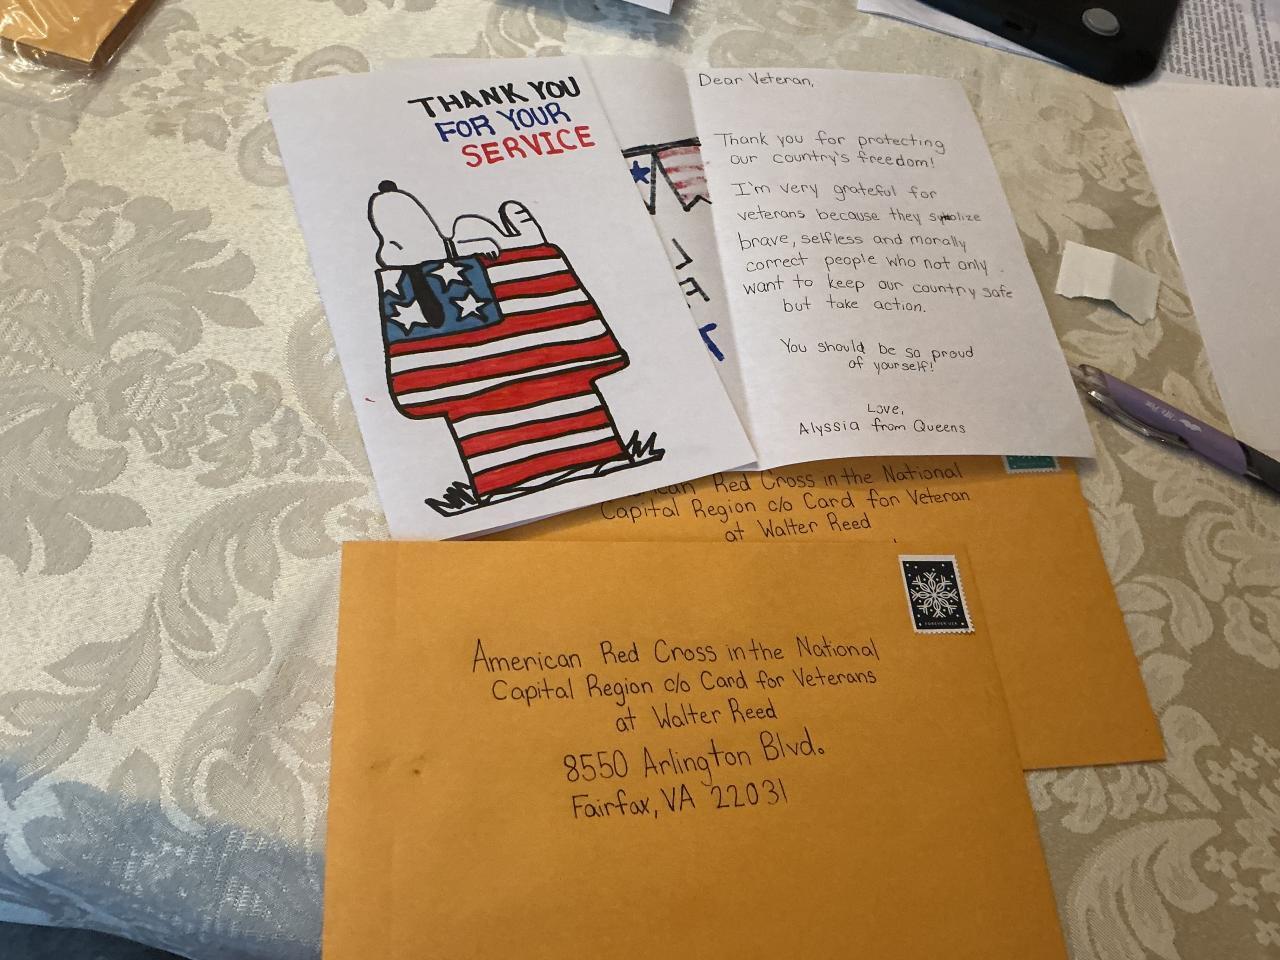 THANK YOU
FOR YOUR
SERVICE
Dear Veteran,
Thank you for protecting
our country's freedom!
I'm very grateful for
veterans because they
brave, selfless and morally
correct people who not only
want to keep our country safe
but take action.
You should be so proud
of yourself!
Love,
Alyssia from Queens
Red Cross in the National
Capital Region c/o Card for Veteran
at Walter Reed
FOREVER USA
American Red Cross in the National
Capital Region c/o Card for Veterans
at Walter Reed
8550 Arlington Blvd.
Fairfax, VA 22031